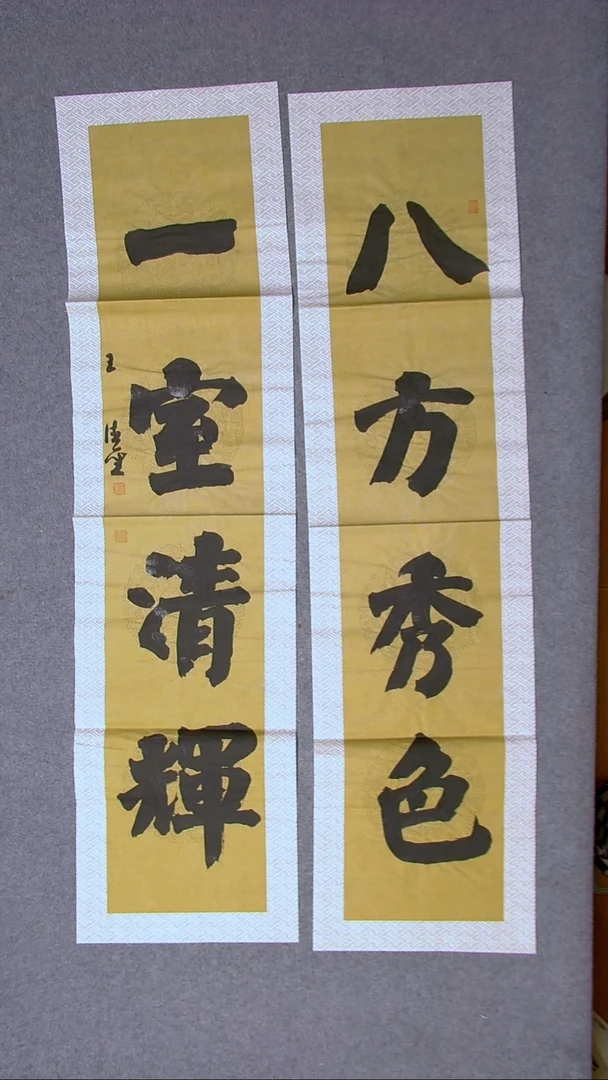 八方秀色
一室清輝
王